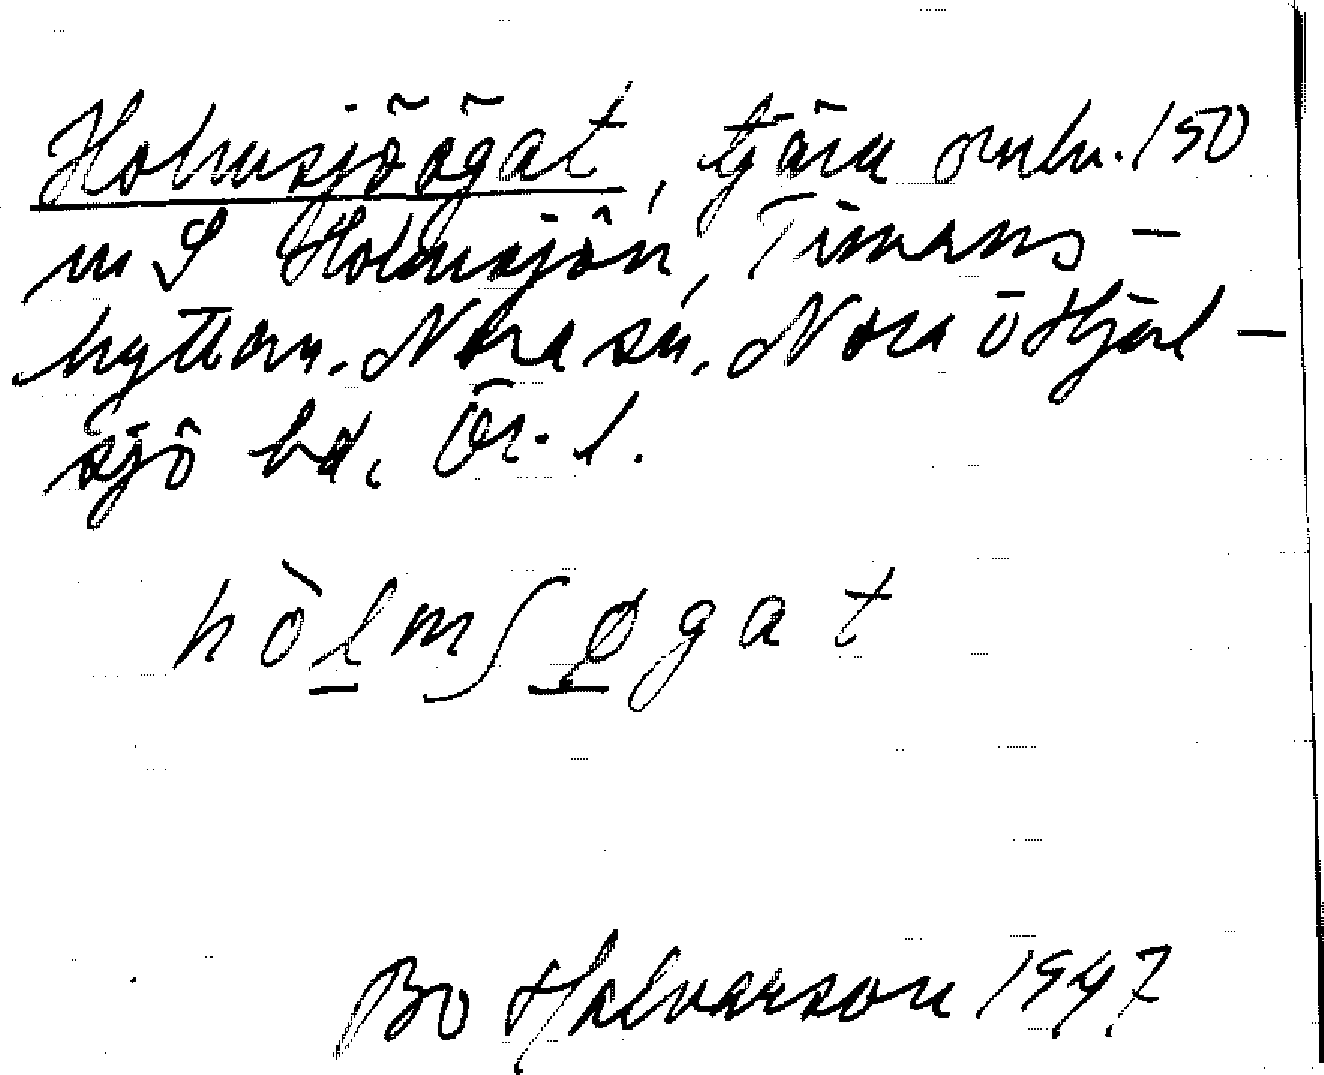 Holmsjöögat, tjärn omkr. 150
m S Holmsjön, Timans-
hyttan. Nora sn, Nora o Hjul-
sjö bd. Ör. l.
hòlmʃøgat
Bo Halvarson 1947